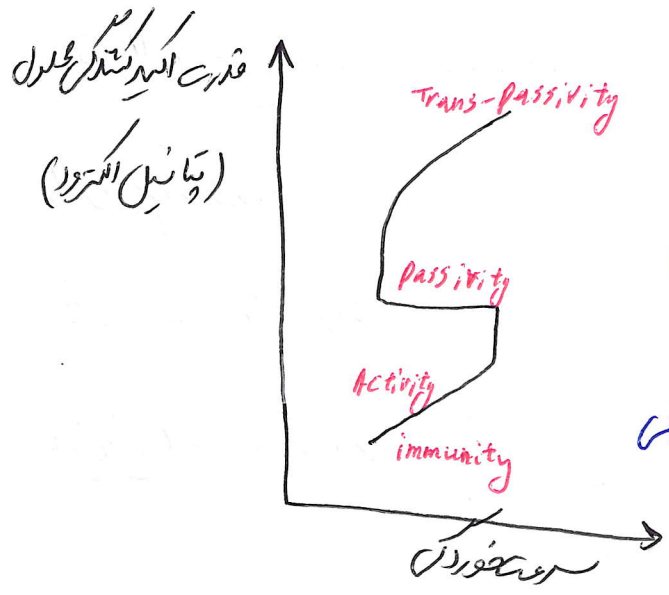 قدرت اکسید کنندگی محلول
(پتانسیل الکترود)
Trans-passivity
passivity
Activity
immunity
سرعت خوردگی